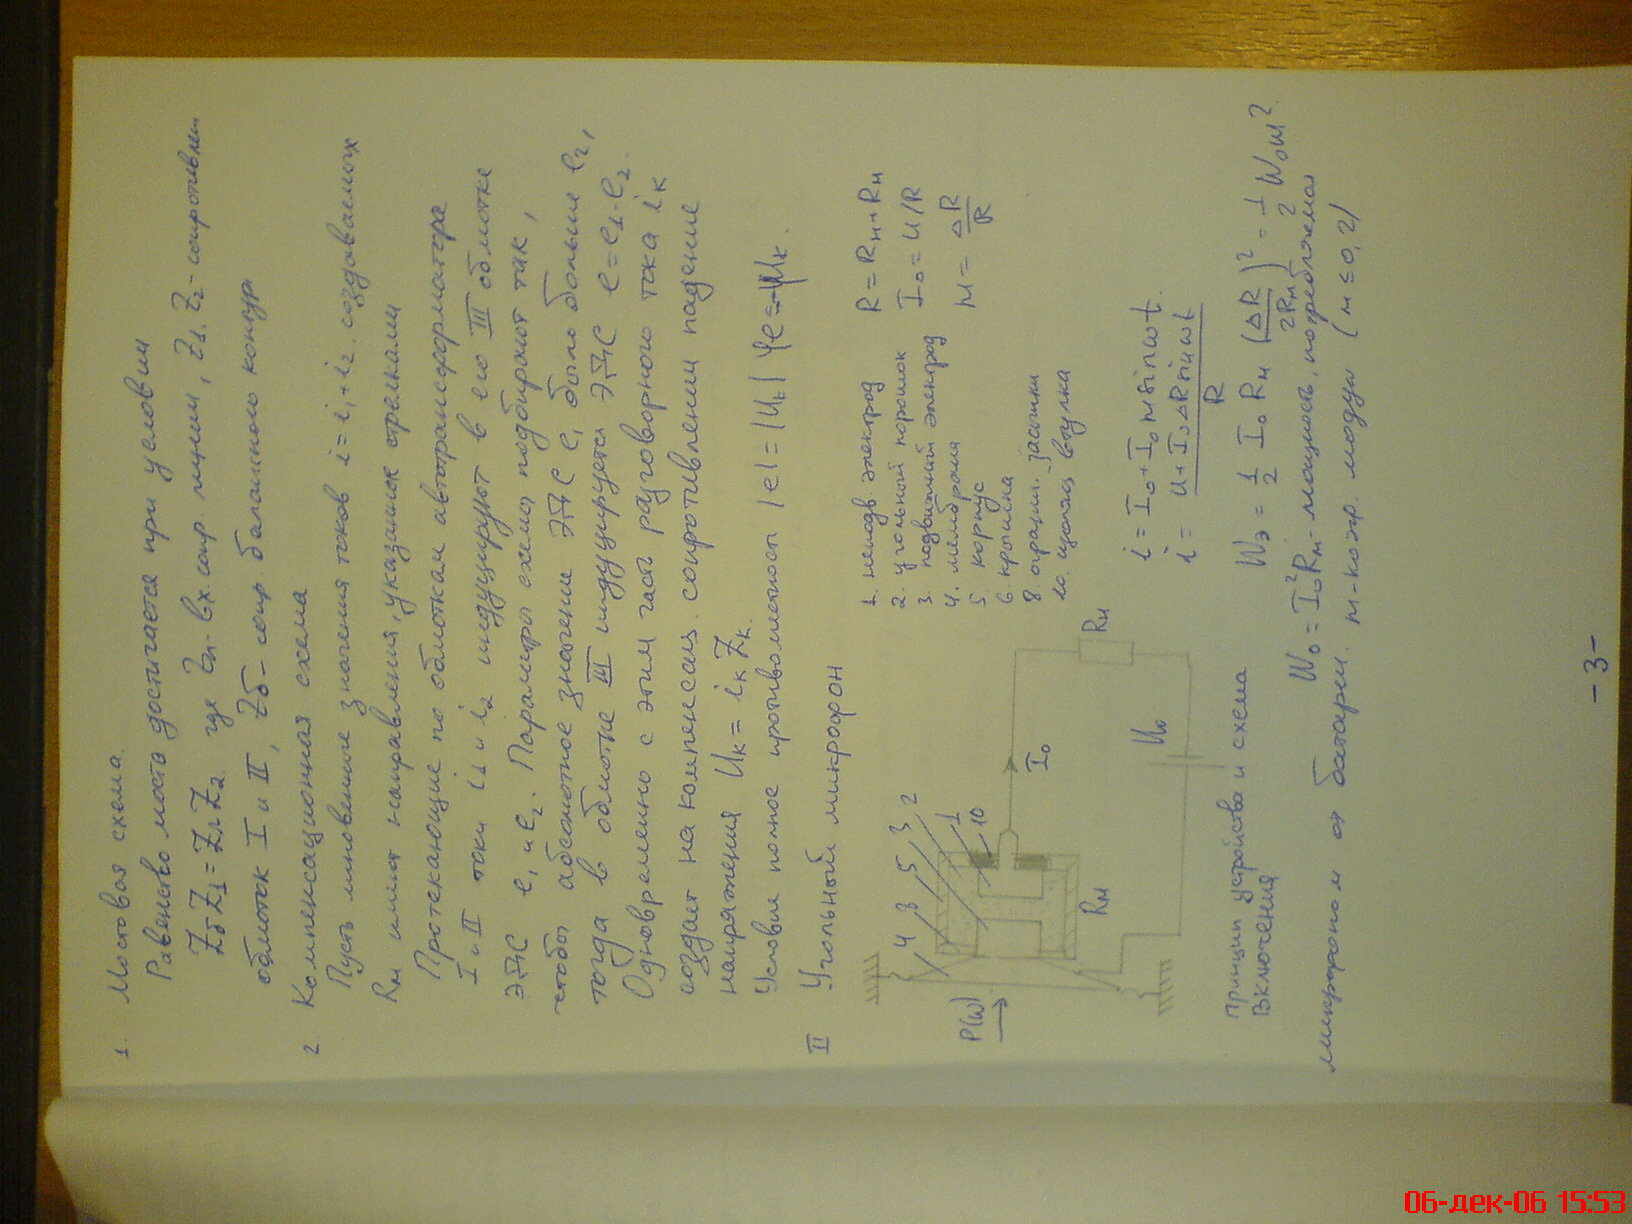 1. Мостовая схема.
Равенство моста достигается при условии
Zб Z1 = Zл Z2 где Zл - вх сопр. линии, Z1, Z2 - сопротивлен
обмоток I и II, Zб - сопр балансного контура
2 Компенсационная схема
Пусть мгновенные значения токов i = i1 + i2. создаваемых
Rм имеют направления, указанные стрелками
Протекающие по обмоткам автотрансформатора
I и II токи i1 и i2 индуцируют в его III обмотке
ЭДС e1 и e2. Параметры схемы подбирают так,
чтобы абсолютное значение ЭДС e1 было больше e2,
тогда в обмотке III индуцируется ЭДС e = e1 - e2.
Одновременно с этим часть разговорного тока iк
создает на компенсац. сопротивлении падение
напряжения Uк = iк Zк.
Условие полное противоместности |e| = |Uк| φe = -φUк.
II Угольный микрофон
P(ω)
4 3 5 3 2
1
10
Rм
I0
Rн
U0
1. неподв электрод
2. угольный порошок
3. подвижный электрод
4. мембрана
5 корпус
6. крышка
8. огранич. засыпки
10. втулка
R = Rм + Rн
I0 = U/R
M = ΔR/R
Принцип устройства и схема
включения
i = I0 + I0 м sinωt.
i = U + I0 ΔR sin ωt / R
Wэ = 1/2 I0 Rн (ΔR/2Rм)² = 1/2 W0 m²
W0 = I0² Rм - мощность, потребляемая
микрофоном от батареи. m - коэф. модул (м ≤ 0,2)
- 3 -
06-дек-06 15:53